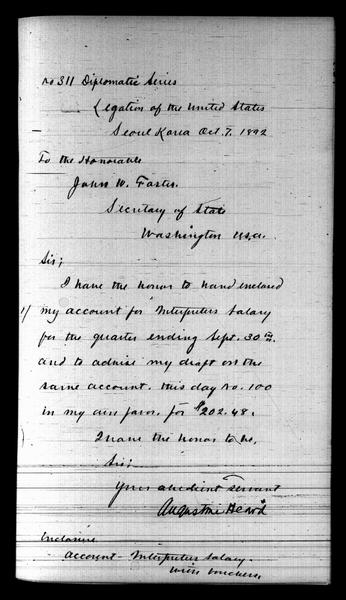 No 311 Diplomatic Series
Legation of the United States
Seoul Korea Oct. 7, 1892
To the Honorable
John W. Foster.
Secretary of State
Washington U.S.A.
Sir;
I have the honor to hand enclosed
1/ my account for Interpreters Salary
for the quarter ending Sept. 30th.
and to advise my draft on the
same account. this day No. 100
in my own favor. for $202.48.
I have the honor to be.
Sir;
Your obedient Servant
Augustine Heard
Enclosure
account - Interpreters Salary.
with vouchers.